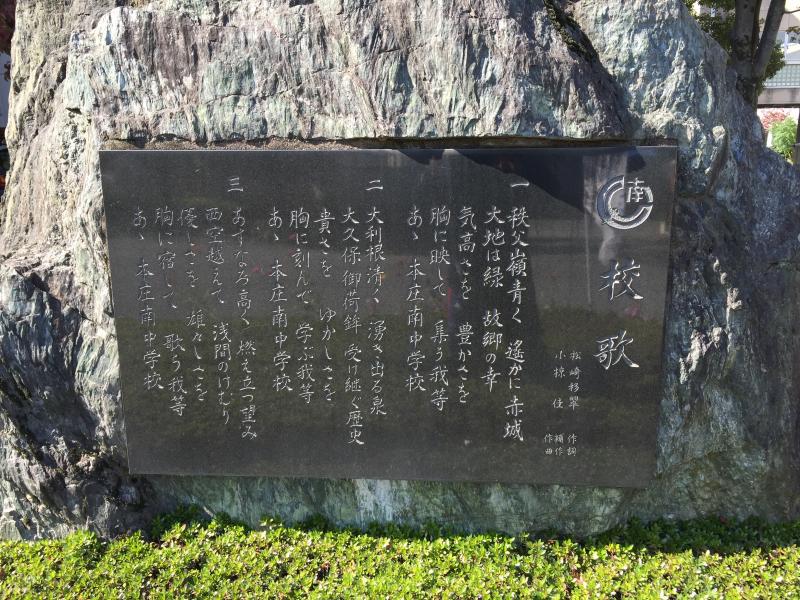 南
校歌
松崎移翠 作詞
小椋佳 補作 作曲
一 秩父嶺青く 遙かに赤城
大地は緑 故郷の幸
気高さを 豊かさを
胸に映して 集う我等
あゝ 本庄南中学校
二 大利根清く 湧き出る泉
大久保御荷鉾 受け継ぐ歴史
貴さを ゆかしさを
胸に刻んで 学ぶ我等
あゝ 本庄南中学校
三 あすなろ高く 燃え立つ望み
西空越えて 浅間のけむり
優しさを 雄々しさを
胸に宿して 歌う我等
あゝ 本庄南中学校